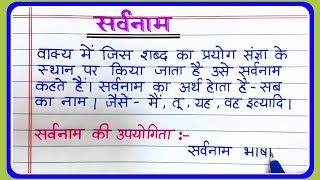 सर्वनाम
वाक्य में जिस शब्द का प्रयोग संज्ञा के
स्थान पर किया जाता है उसे सर्वनाम
कहते हैं। सर्वनाम का अर्थ होता है - सब
का नाम। जैसे - मैं, तू, यह, वह इत्यादि।
सर्वनाम की उपयोगिता :-
सर्वनाम भाषा